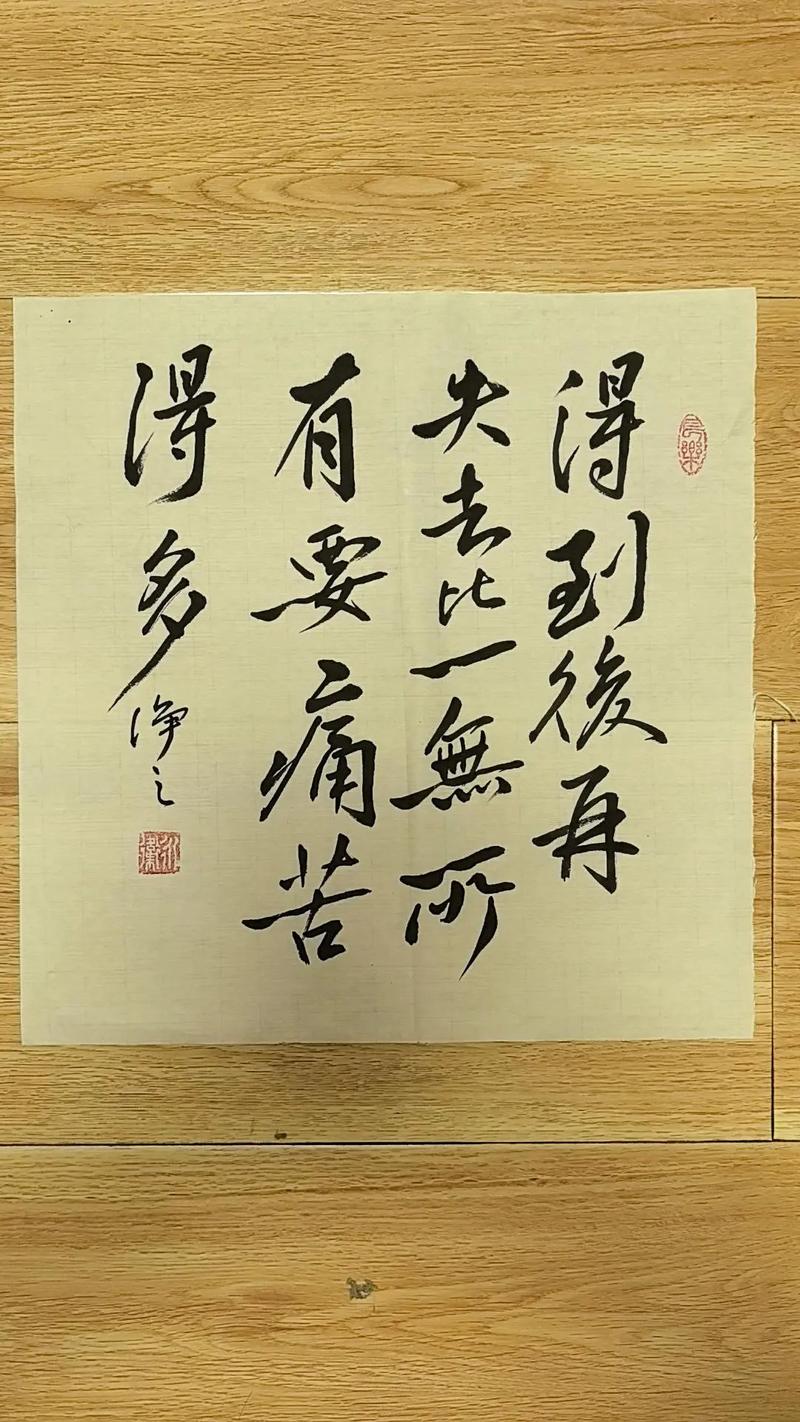 得到後再
失去比一無所
有要痛苦
得多
淨之
長樂